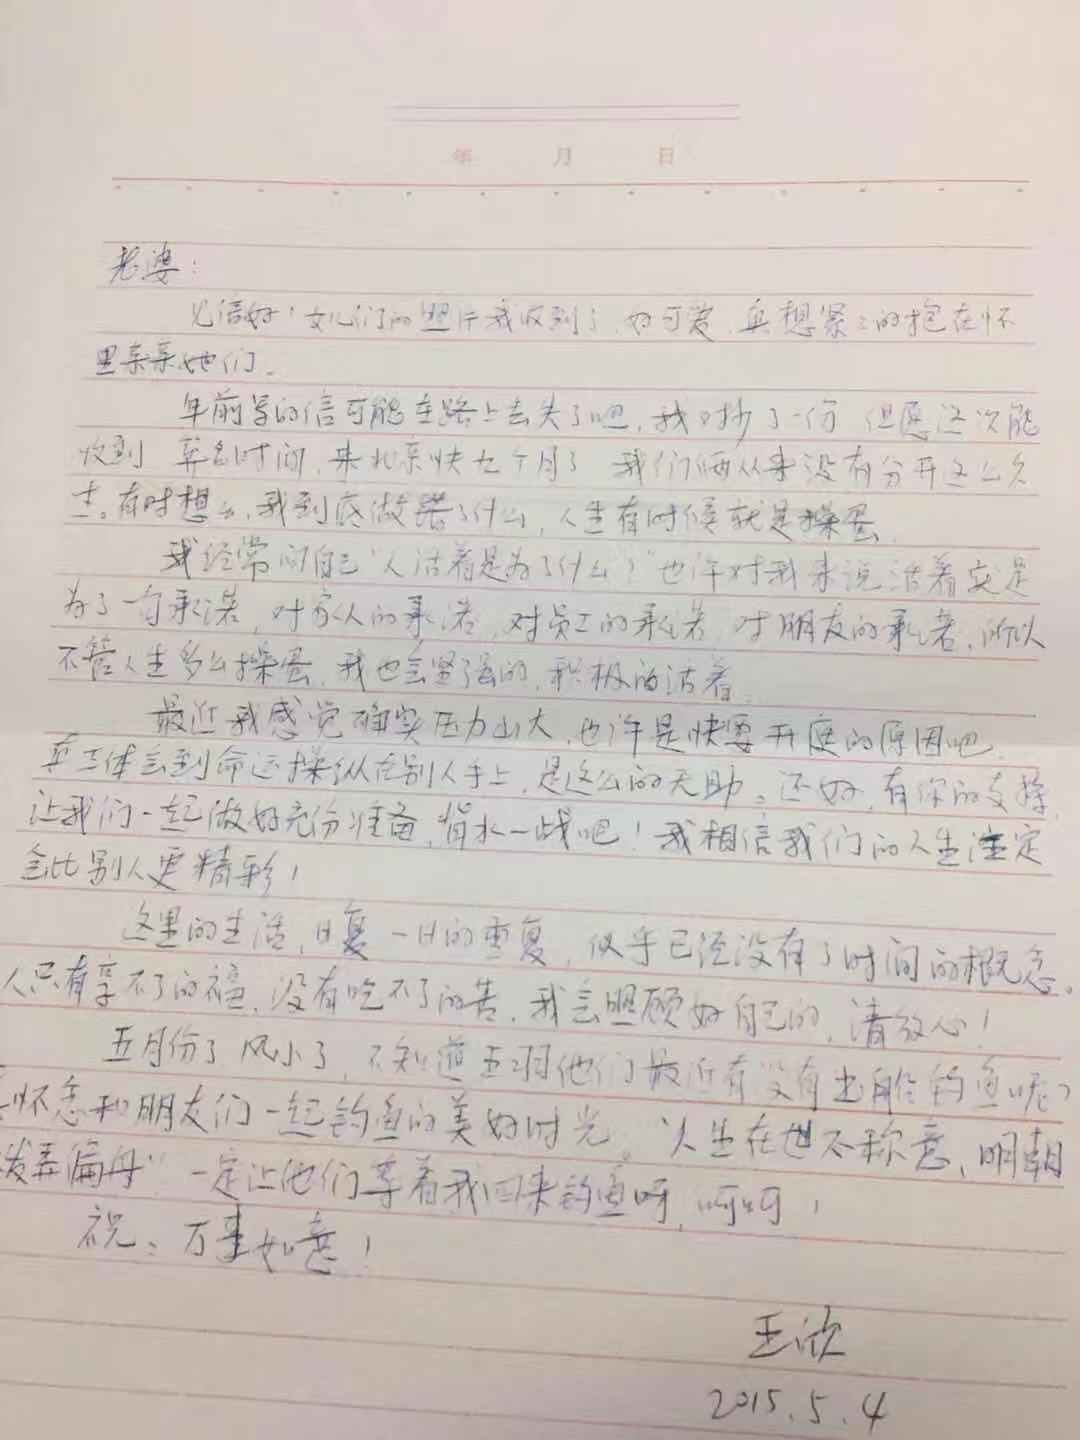 年 月 日
老婆：
见信好！女儿们的照片我收到了，好可爱，真想紧紧的抱在怀
里亲亲她们。
年前写的信可能在路上丢失了吧，我又抄了一份 但愿这次能
收到 算算时间，来北京快九个月了 我们俩从来没有分开这么久
过。有时想想，我到底做错了什么，人生有时候就是操蛋。
我经常问自己"人活着是为了什么？"也许对我来说活着就是
为了一句承诺，对家人的承诺，对员工的承诺，对朋友的承诺，所以
不管人生多么操蛋，我也会坚强的，积极的活着。
最近我感觉确实压力山大，也许是快要开庭的原因吧，
体会到命运操纵在别人手上，是这么的无助。还好，有你的支持，
让我们一起做好充份准备，背水一战吧！我相信我们的人生注定
会比别人更精彩！
这里的生活，日复一日的重复，似乎已经没有了时间的概念。
人只有享不了的福，没有吃不了的苦，我会照顾好自己的，请放心！
五月份了 风小了，不知道他们最近有没有出船钓鱼呢？
怀念和朋友们一起钓鱼的美好时光。"人生在世不称意，明朝
一定让他们等着我回来钓鱼呀，呵呵！
祝：万事如意！
王欣
2015.5.4